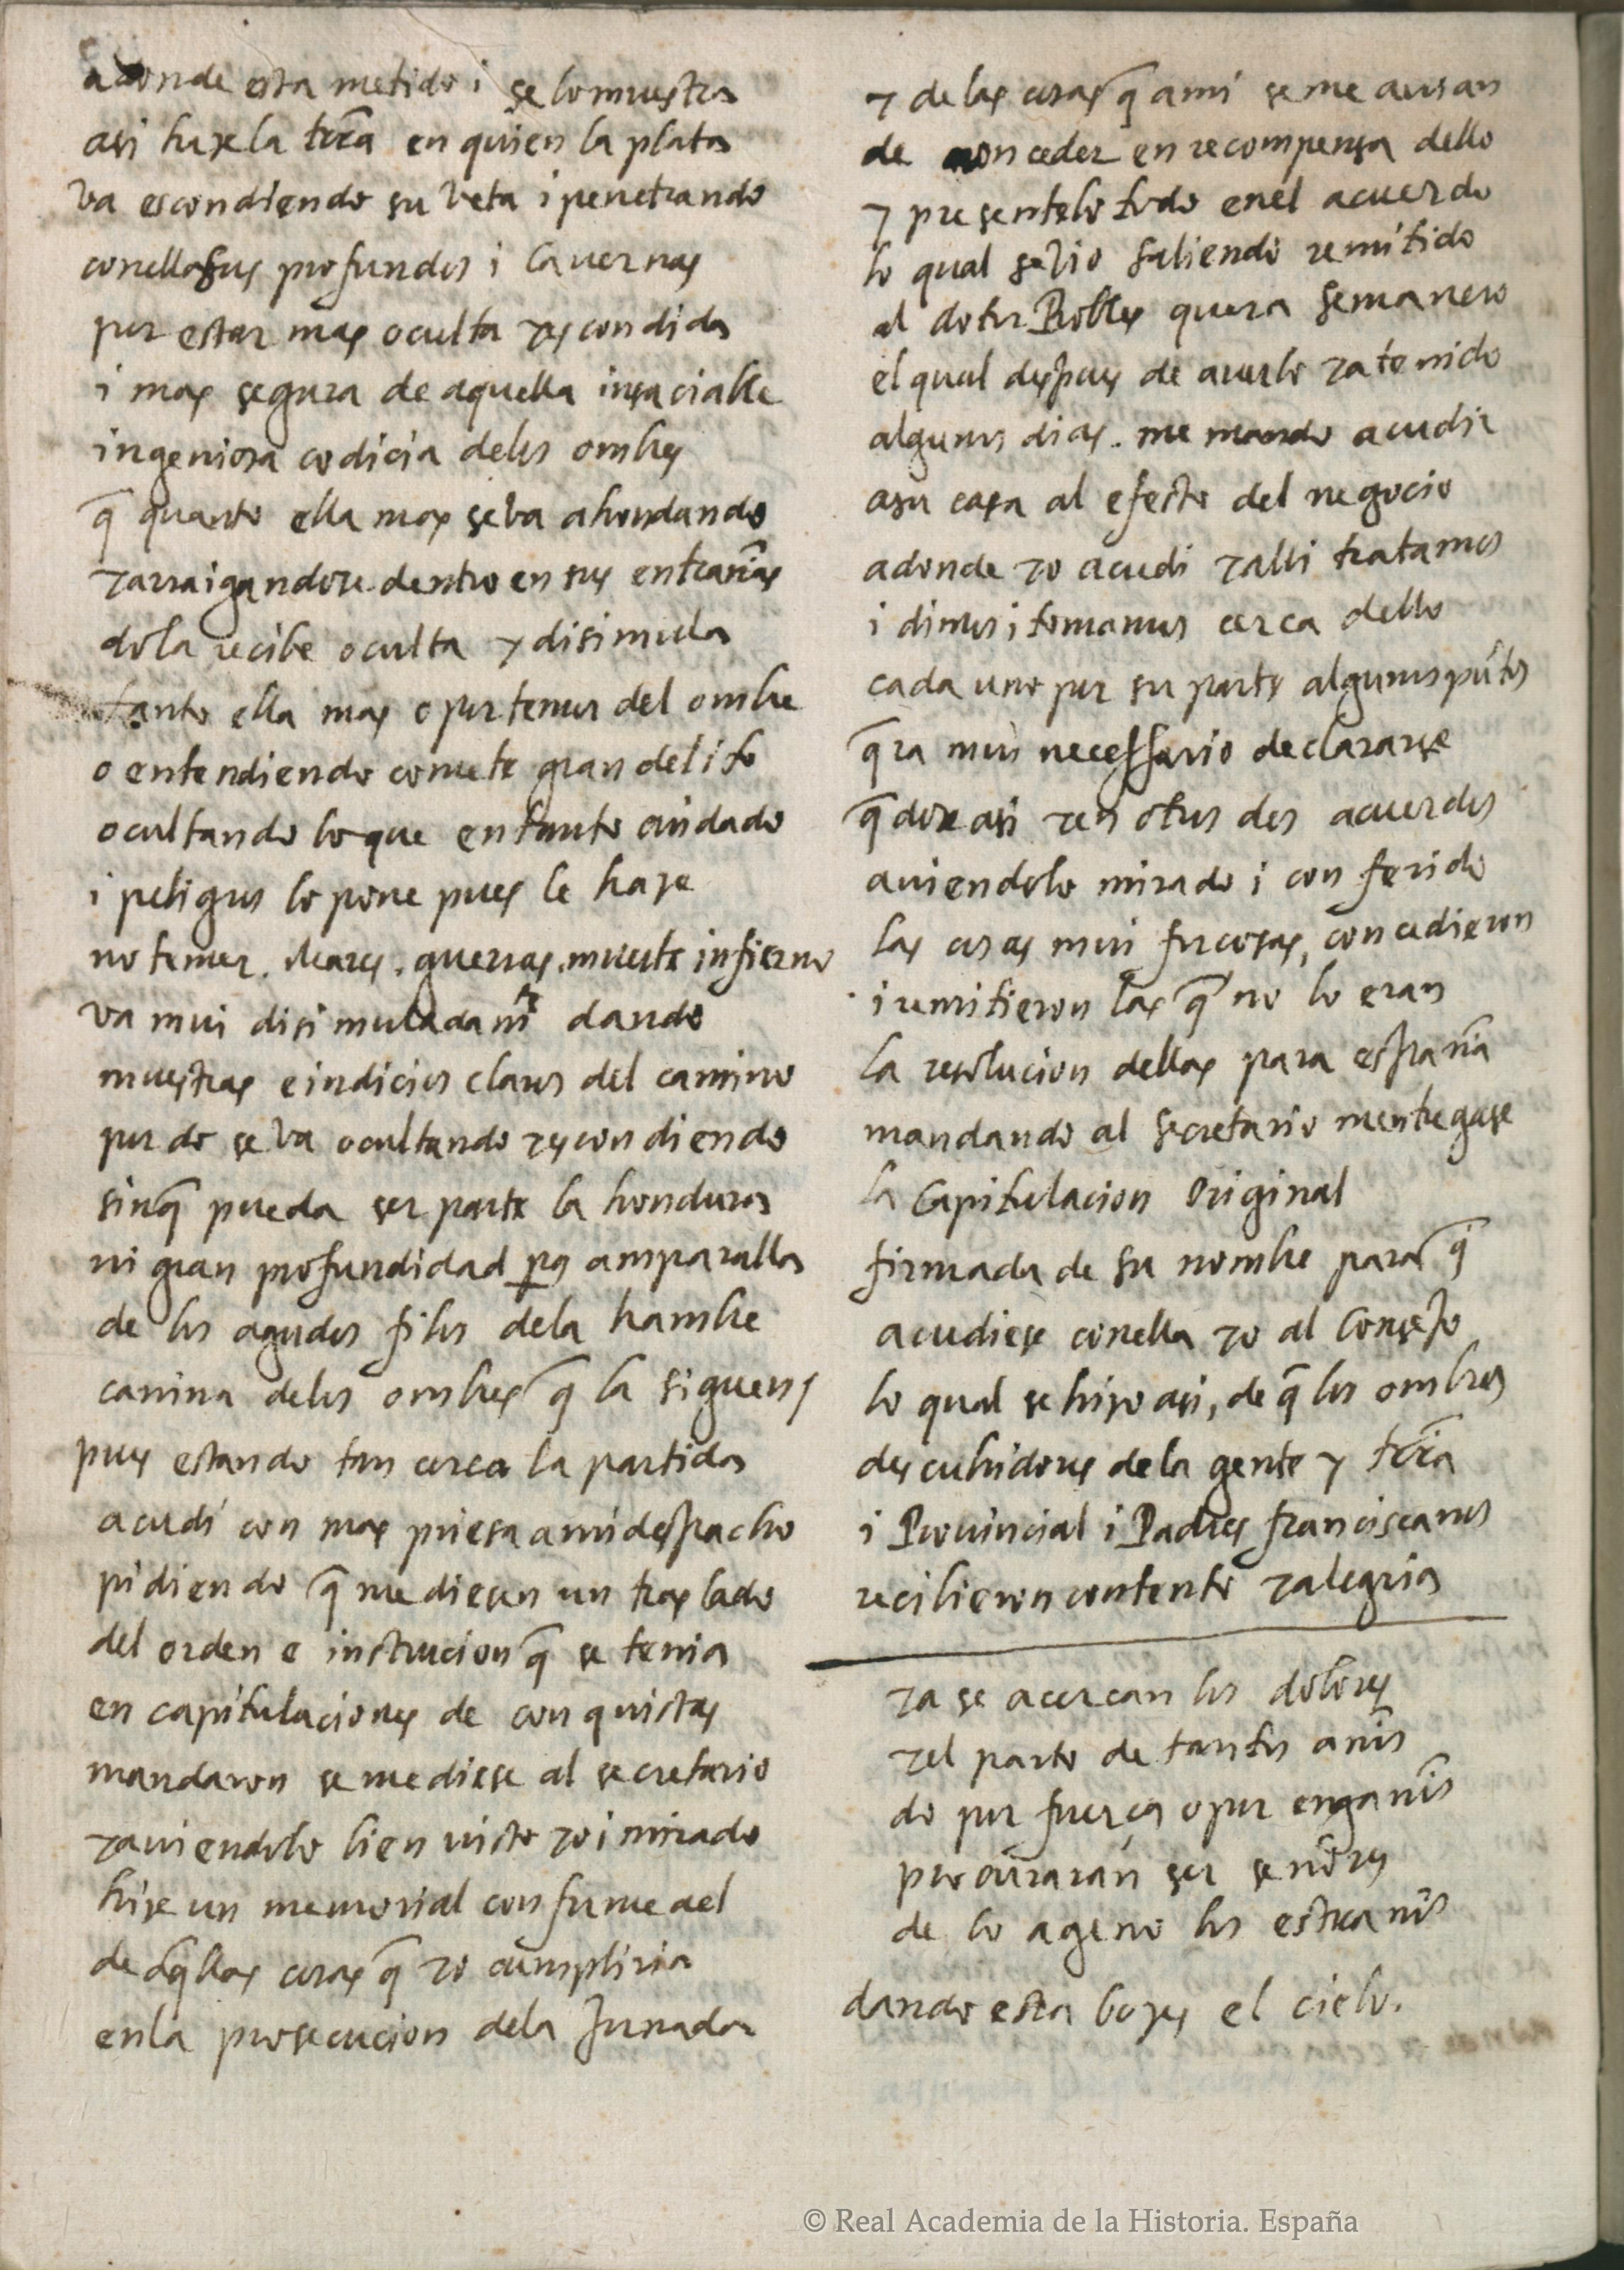 adonde esta metido i se lo muestra
asi haze la trra en quien la plata
va escondiendo su veta i penetrando
con ella sus profundos i cavernas
por estar mas oculta yescondida
i mas segura de aquella insaciable
ingeniosa codicia delos ombres
q̃ quanto ella mas seva ahondando
yarraigandose dentro en sus entrañas
dola recibe oculta y disimula
tanto ella mas o por temor del ombre
o entendiendo comete gran delito
ocultando loque entanto cuidado
i peligros lo pone pues le haze
no temer. Mares. guerras. muerte infierno
va mui disimuladamte dando
muestras e indicios claros del camino
por do se va ocultando yescondiendo
sinq̃ pueda ser parte la hondura
ni gran profundidad pa amparalla
de los agudos filos dela hambre
canina delos ombres q̃ la siguen /
pues estando tan cerca la partida
acudí con mas priesa ami despacho
pidiendo q̃ me diesen un traslado
del orden e instrucion q̃ se tenia
en capitulaciones de conquistas
mandaron se me diese al secretario
yaviendolo bien visto yo i mirado
hize un memorial conforme ael
de aq̃llas cosas q̃ yo cumpliria
enla prosecucion dela Jornada
y delas cosas q̃ ami se me avian
de conceder en recompensa dello
y presentelo todo enel acuerdo
lo qual se vio saliendo remitido
al dotor Robles quera semanero
el qual despues de averlo ya tenido
algunos dias. me mando acudir
asu casa al efecto del negocio
adonde yo acudi yalli tratamos
i dimos i tomamos cerca dello
cada uno por su parte algunos pũtos
q̃ra mui necessario declararse
q̃dose asi yen otros dos acuerdos
aviendolo mirado i conferido
las cosas mui forcosas, concedieron
i remitieron las q̃ no lo eran
la resolucion dellas para españa
mandando al secretario mentregase
la Capitulacion Original
firmada de su nombre para q̃
acudiese conella yo al Consejo
lo qual se hizo asi, de q̃ los ombres
descubridores dela gente y trra
i Provincial i Padres franciscanos
recibieron contento yalegria
ya se acercan los dolores
yel parto de tantos años
do por fuerça opor engaños
procuraran ser señores
de lo ageno los estraños
dando esta bozes el cielo.
© Real Academia de la Historia. España